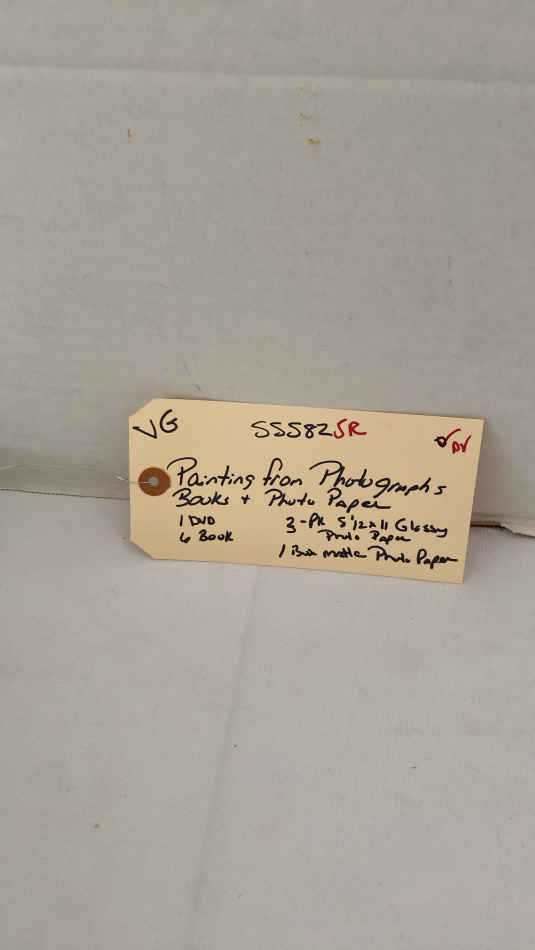 VG
55582SR
Painting from Photographs
Books + Photo Paper
1 DVD
6 Book
3-Pk 8 1/2 x 11 Glossy
Photo Paper
1 Box matte Photo Paper